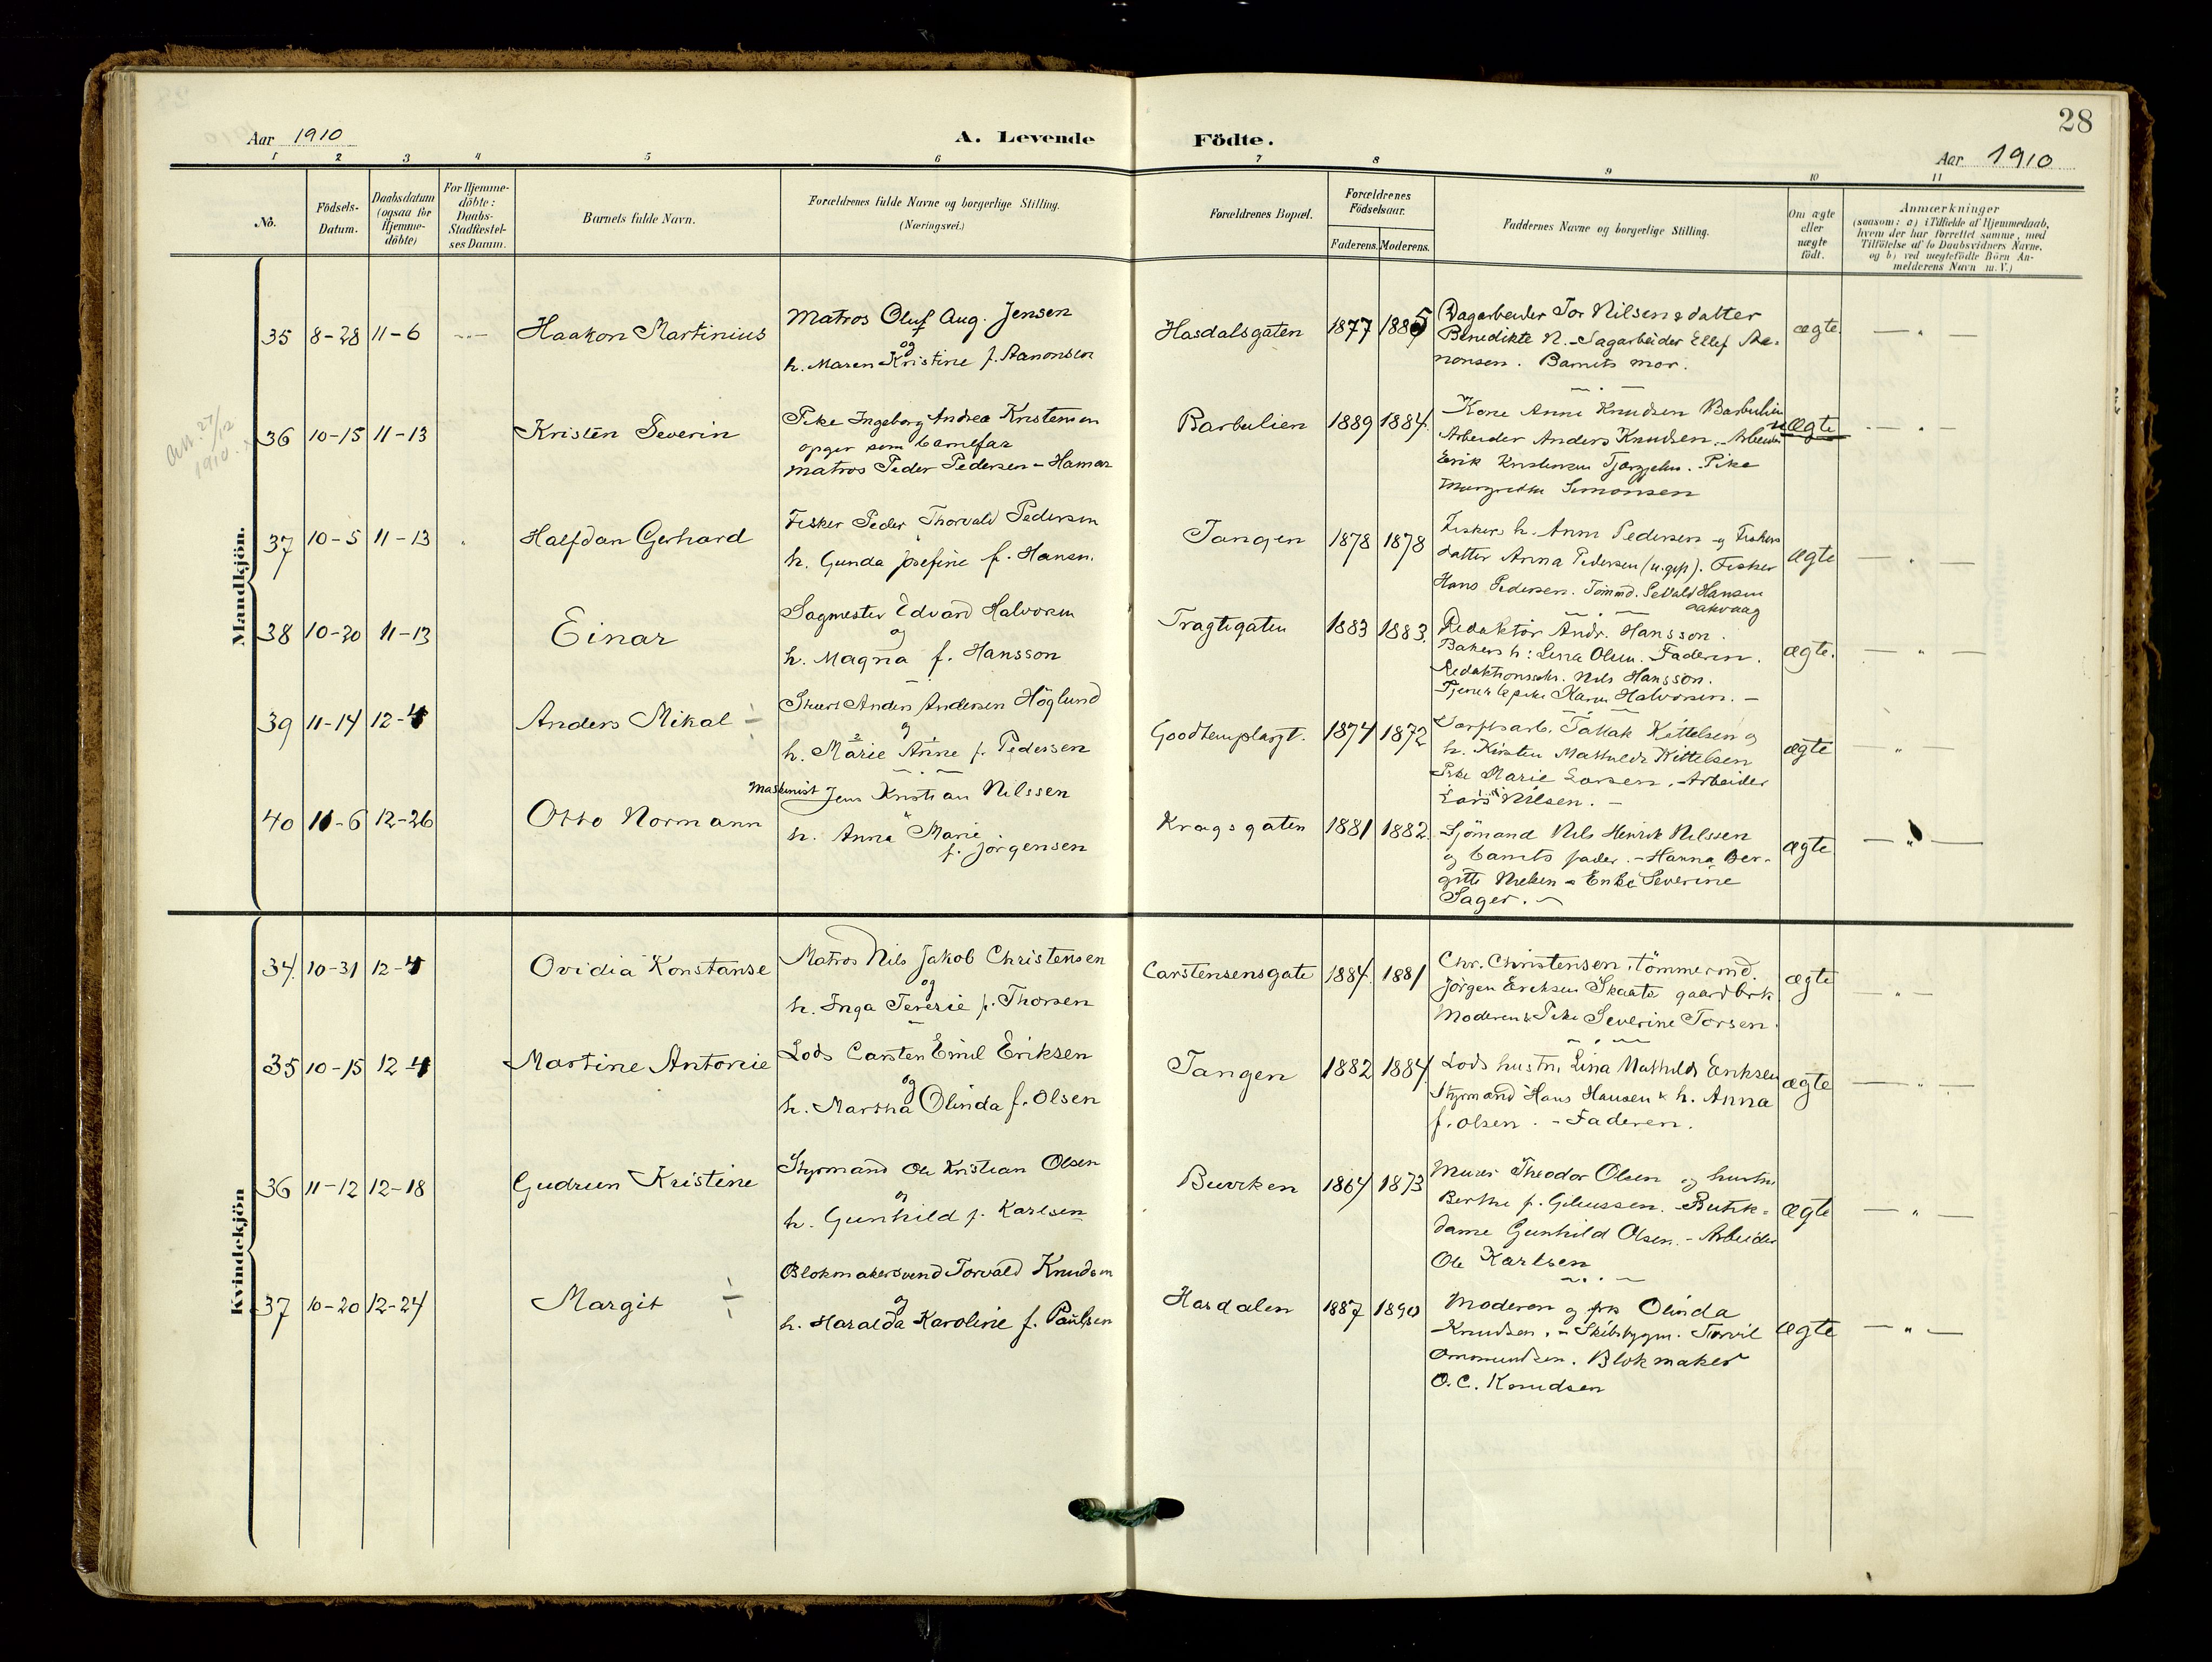 28
Aar 1910
A. Levende Födte.
Aar 1910
1 2 3 4 5 6 7 8 9 10 11
No.
Födsels-
Datum.
Daabsdatum
(ogsaa for
Hjemme-
döbte)
For Hjemme-
döbte:
Daabs-
Stadfæstel-
ses Datum.
Barnets fulde Navn.
Forældrenes fulde Navne og borgerlige Stilling.
(Næringsvei.)
Forældrenes Bopæl.
Forældrenes
Födselsaar.
Faderens. Moderens.
Faddernes Navne og borgerlige Stilling.
Om ægte
eller
uægte
födt.
Anmærkninger
(saasom: a) i Tilfælde af Hjemmedaab,
hvem der har forrettet samme, med
Tilföielse af to Daabsvidners Navne,
og b) ved uægtefödte Börn An-
melderens Navn m. V.)
Mandkjön.
35 8-28 11-6 Haakon Martinius
Matros Oluf Aug. Jensen
og
h. Maren Kristine f. Aanonsen
Hasdalsgaten 1877 1885
Dagarbeider Tor Nilsen & datter
Benedikte N. - Sagarbeider Ellef Aa-
nonsen. Barnets mor.
ægte — " —
27/12
1910
36 10-15 11-13 Kristen Severin
Pike Ingeborg Andrea Kristensen
opgir som barnefar
Matros Peder Pedersen - Hamar
Barbulien 1889 1884
Kone Anne Knudsen Barbulien
Arbeider Anders Knudsen. - Arbeider
Erik Kristensen . Pike
Margrethe Simonsen
uægte — " —
37 10-5 11-13 Halfdan Gerhard
Fisker Peder Thorvald Pedersen
h. Gunda Josefine f. Hansen.
Tangen 1878 1878
Fiskers h. Anne Pedersen og Fiskers
datter Anna Pedersen (u.gift). Fisker
Hans Pedersen. Tömmd. Hansen
ægte — " —
38 10-20 11-13 Einar
Sagmester Edvard Halvorsen
og
h. Magna f. Hansson
Tragtigaten 1883 1883.
Redaktör Andr. Hansson.
Bakers h: Lina Olsen. Faderen.
Redaktionssekr. Nils Hansson.
Tjenestepike Karen Halvorsen. -
ægte. — " —
39 11-14 12-4 Anders Mikal
Anders Andersen Höglund
og
h. Marie Anne f. Pedersen
Goodtemplargt. 1874 1872
Kittelsen og
h. Kirsten Mathilde Kittelsen
Pike Marie Larsen. - Arbeider
Lars Nilsen. -
ægte — " —
40 11-6 12-26 Otto Normann
Maskinist Jens Kristian Nilssen
h. Anna Marie
f. Jörgensen
Kragsgaten 1881 1882
Sjömand Nils Henrik Nilssen
og barnets fader. - Hanna Ber-
gitte Nielsen - Enke Severine
Sager. -
ægte — " —
Kvindekjön
34. 10-31 12-4 Ovidia Konstanse
Matros Nils Jakob Christensen
og
h. Inga Teresie f. Thorsen
Carstensensgate 1884. 1881
Chr. Christensen, tömmermd.
Jörgen Eriksen Skaate gaardbrk.
Moderen & Pike Severine Torsen.
ægte — " —
35 10-15 12-4 Martine Antonie
Lods Carsten Emil Eriksen
og
h. Martha Olinda f. Olsen
Tangen 1882 1884
Lods hustru Lina Mathilde Eriksen
Styrmand Hans Hansen & h. Anna
f. Olsen. - Faderen.
ægte — " —
36 11-12 12-18 Gudrun Kristine
Styrmand Ole Kristian Olsen
og
h. Gunhild f. Karlsen
Buvrken 1864 1873
Murer Theodor Olsen og hustru
Berthe f. . Butik-
dame Gunhild Olsen. - Arbeider
Ole Karlsen
ægte — " —
37 10-20 12-24 Margit
Blokmakersvend Torvald Knudsen
og
h. Haralda Karoline f. Paulsen
Hasdalen 1887 1890
Moderen og frk Olinda
Knudsen. - Skibsbygm. Torvil
Ommundsen. Blokmaker
O.C. Knudsen
ægte — " —